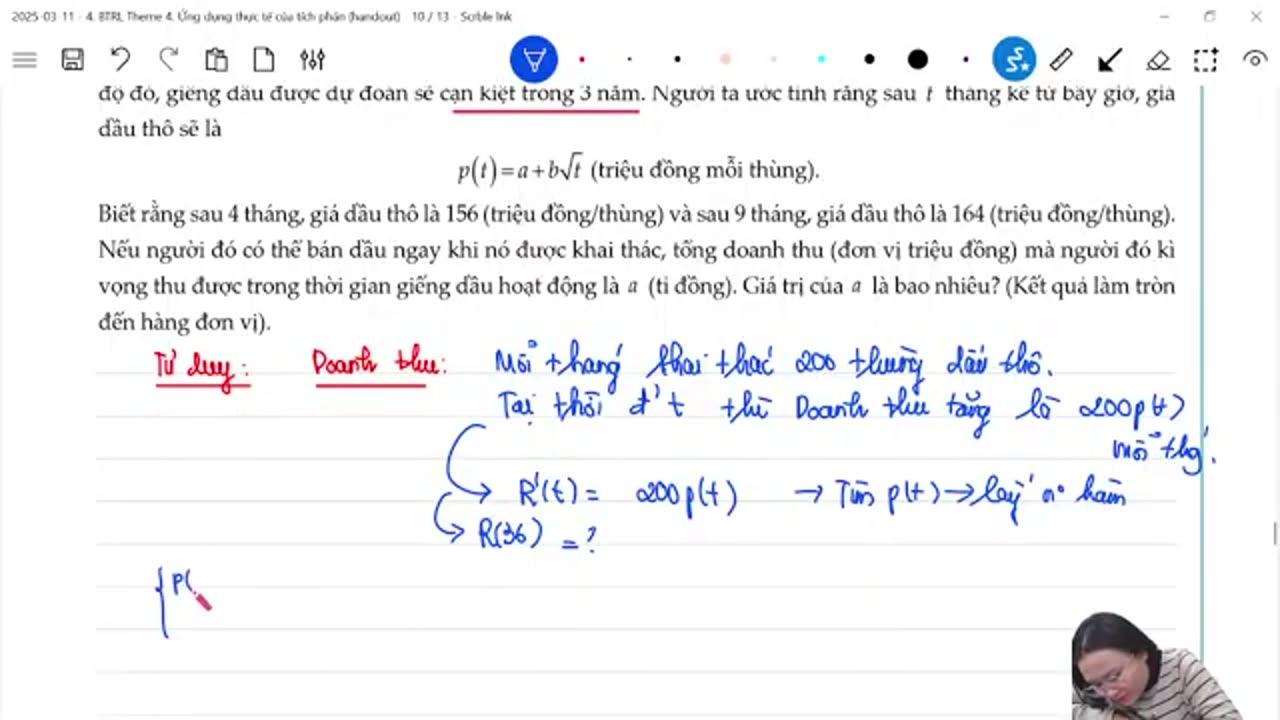 2025-03-11 - 4. BTRL Theme 4. Ứng dụng thực tế của tích phân (handout) 10 / 13 - Scrble Ink
độ đó, giếng dầu được dự đoán sẽ cạn kiệt trong 3 năm. Người ta ước tính rằng sau t tháng kể từ bây giờ, giá
dầu thô sẽ là
p(t) = a + b√t (triệu đồng mỗi thùng).
Biết rằng sau 4 tháng, giá dầu thô là 156 (triệu đồng/thùng) và sau 9 tháng, giá dầu thô là 164 (triệu đồng/thùng).
Nếu người đó có thể bán dầu ngay khi nó được khai thác, tổng doanh thu (đơn vị triệu đồng) mà người đó kì
vọng thu được trong thời gian giếng dầu hoạt động là a (tỉ đồng). Giá trị của a là bao nhiêu? (Kết quả làm tròn
đến hàng đơn vị).
Tư duy: Doanh thu: Mỗi tháng khai thác 200 thùng dầu thô.
Tại thời đ' t thì Doanh thu tăng là 200p(t)
mỗi thg.
R'(t) = 200p(t) → Tìm p(t) → lấy n° hàm
R(36) = ?
{ P(